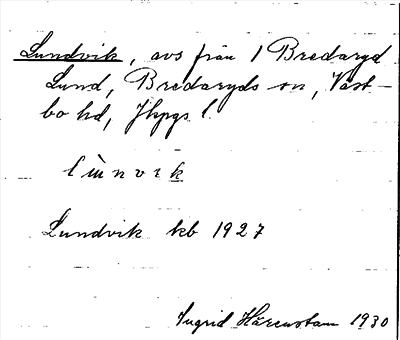 Lundvik, avs från 1 Bredaryd
Lund, Bredaryds sn, Väst-
bo hd, Jkpgs l.
lùnvik
Lundvik kb 1927
Ingrid Härenstam 1930